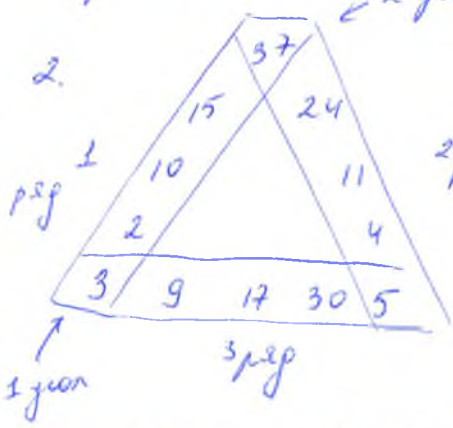 2.
37
15 24
1 ряд
10 11
2 4
3 9 17 30 5
3 ряд
1 угол